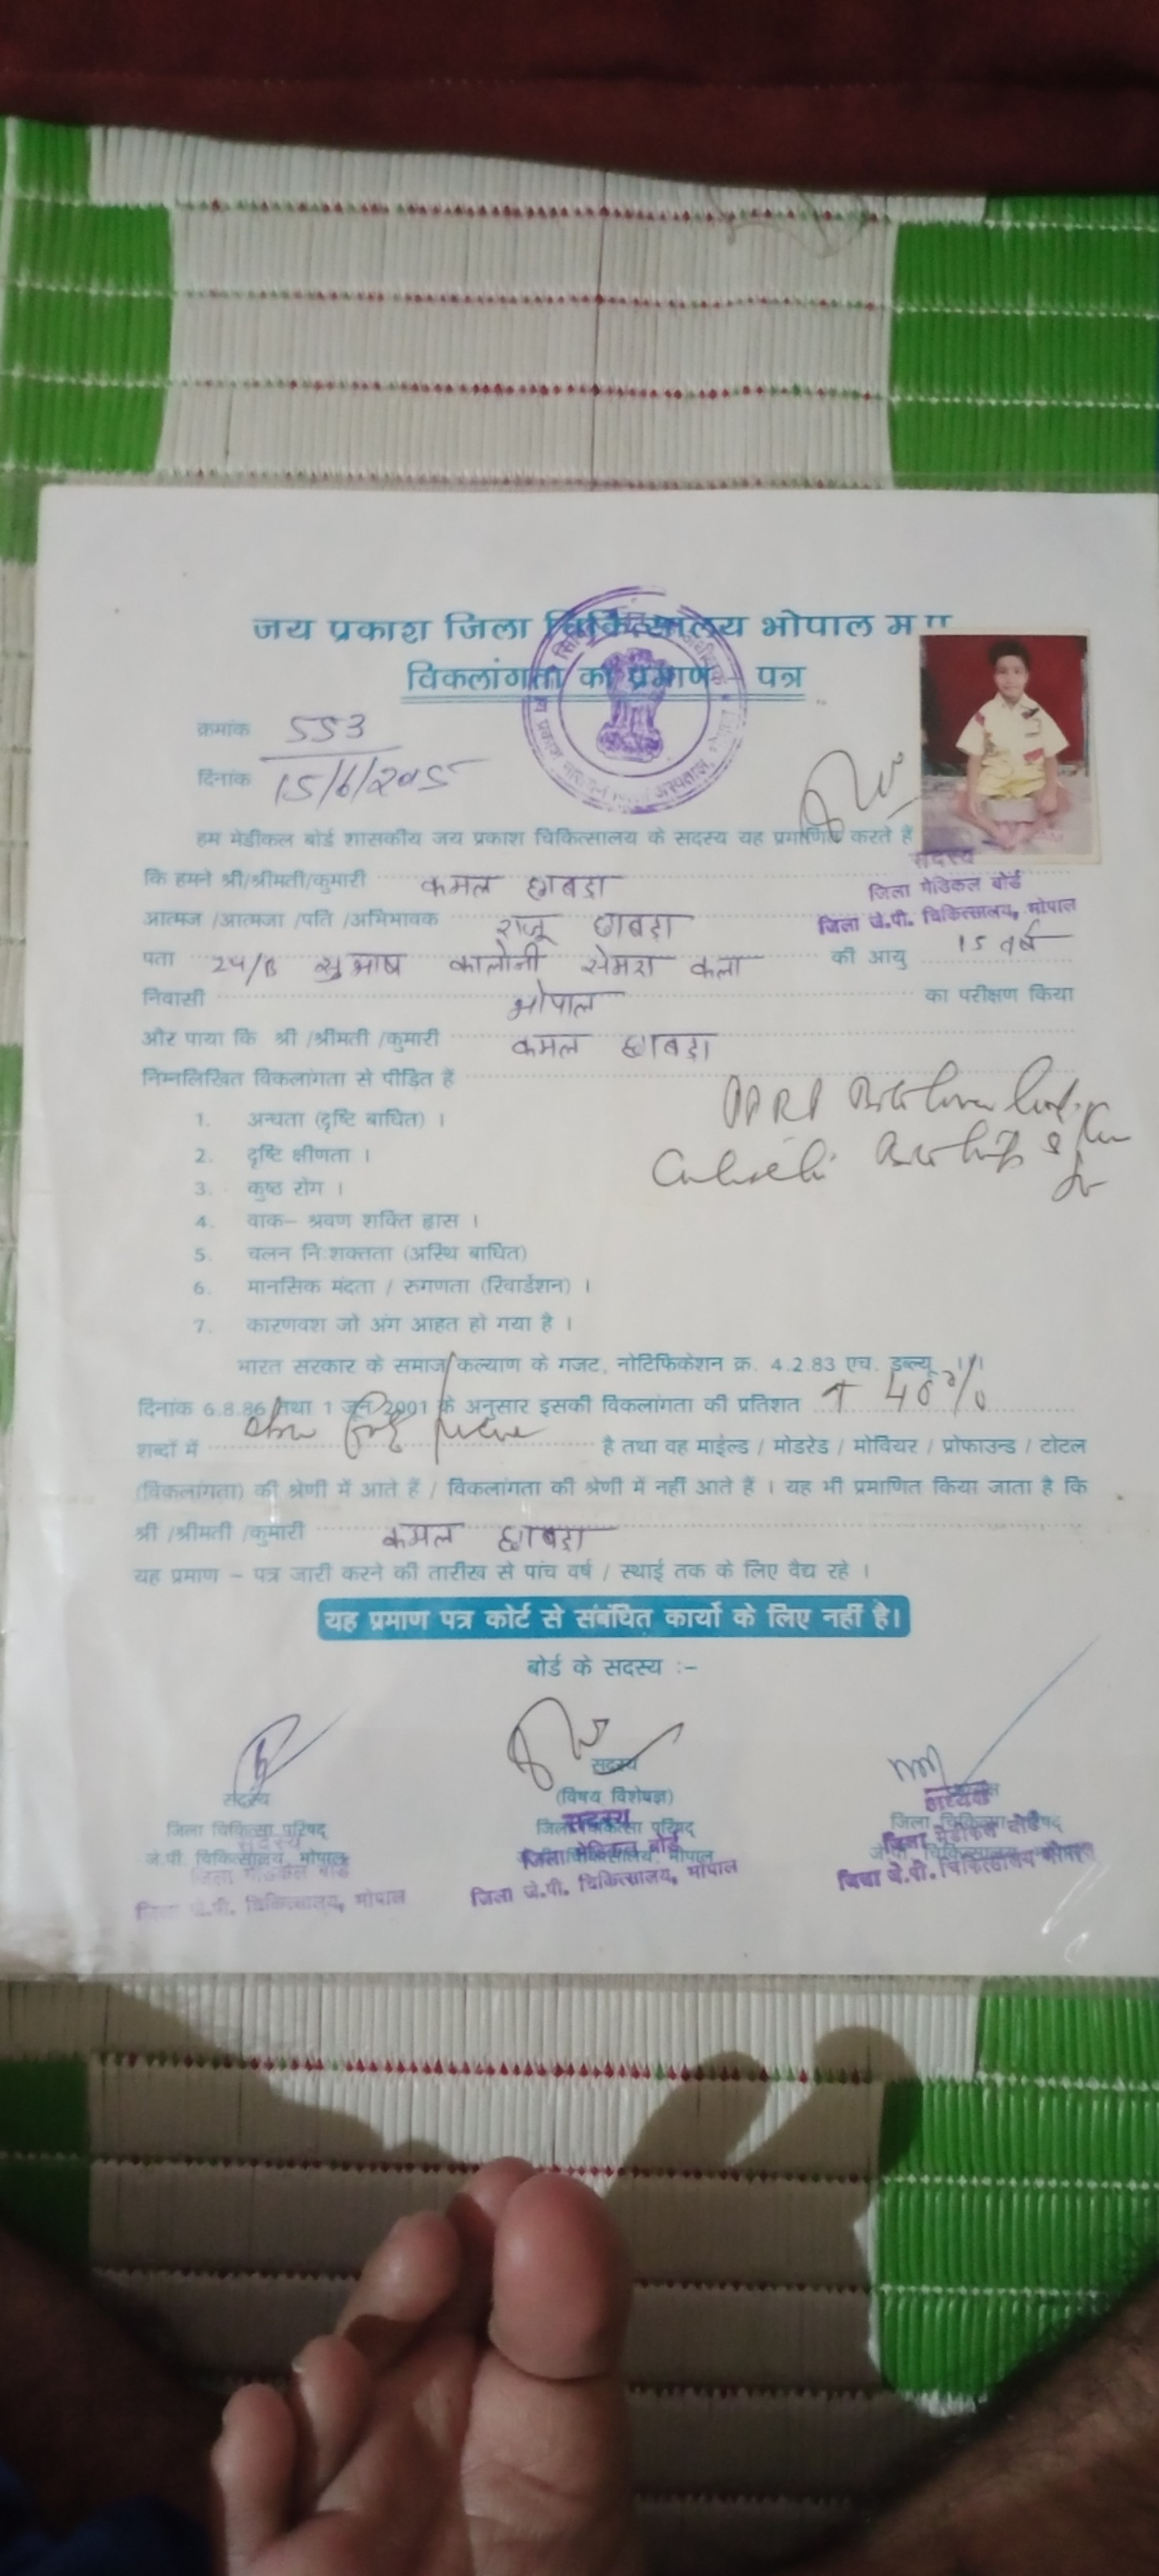 जय प्रकाश जिला चिकित्सालय भोपाल म
विकलांगता का प्रमाण - पत्र
क्रमांक 553
दिनांक 15/6/2005
हम मेडीकल बोर्ड शासकीय जय प्रकाश चिकित्सालय के सदस्य यह प्रमाणित करते हैं
सदस्य
कि हमने श्री/श्रीमती/कुमारी कमल छाबड़ा
जिला मेडिकल बोर्ड
आत्मज /आत्मजा /पति /अभिभावक राजू छाबड़ा
जिला जे.पी. चिकित्सालय, भोपाल
पता 24/B सुभाष कालोनी सेमरा कला की आयु 15 वर्ष
निवासी भोपाल का परीक्षण किया
और पाया कि श्री /श्रीमती /कुमारी कमल छाबड़ा
निम्नलिखित विकलांगता से पीड़ित हैं
1. अन्धता (दृष्टि बाधित) ।
2. दृष्टि क्षीणता ।
3. कुष्ठ रोग ।
4. वाक- श्रवण शक्ति ह्रास ।
5. चलन नि:शक्तता (अस्थि बाधित)
6. मानसिक मंदता / रुगणता (रिवार्डेशन) ।
7. कारणवश जो अंग आहत हो गया है ।
भारत सरकार के समाज कल्याण के गजट, नोटिफिकेशन क्र. 4.2.83 एच. डब्ल्यू
दिनांक 6.8.86 तथा 1 जून 2001 के अनुसार इसकी विकलांगता की प्रतिशत 40%
शब्दों में है तथा वह माइल्ड / मोडरेड / मोवियर / प्रोफाउन्ड / टोटल
(विकलांगता) की श्रेणी में आते हैं / विकलांगता की श्रेणी में नहीं आते हैं । यह भी प्रमाणित किया जाता है कि
श्री /श्रीमती /कुमारी कमल छाबड़ा
यह प्रमाण - पत्र जारी करने की तारीख से पांच वर्ष / स्थाई तक के लिए वैद्य रहे ।
यह प्रमाण पत्र कोर्ट से संबंधित कार्यो के लिए नहीं है।
बोर्ड के सदस्य :-
सदस्य
जिला चिकित्सा परिषद्
जे.पी. चिकित्सालय, भोपाल
सदस्य
जिला मेडिकल बोर्ड
जिला जे.पी. चिकित्सालय, भोपाल
सदस्य
(विषय विशेषज्ञ)
जिला चिकित्सा परिषद्
सदस्य
जिला मेडिकल बोर्ड
जिला जे.पी. चिकित्सालय, भोपाल
अध्यक्ष
जिला मेडीकल बोर्ड
जिला जे.पी. चिकित्सालय भोपाल